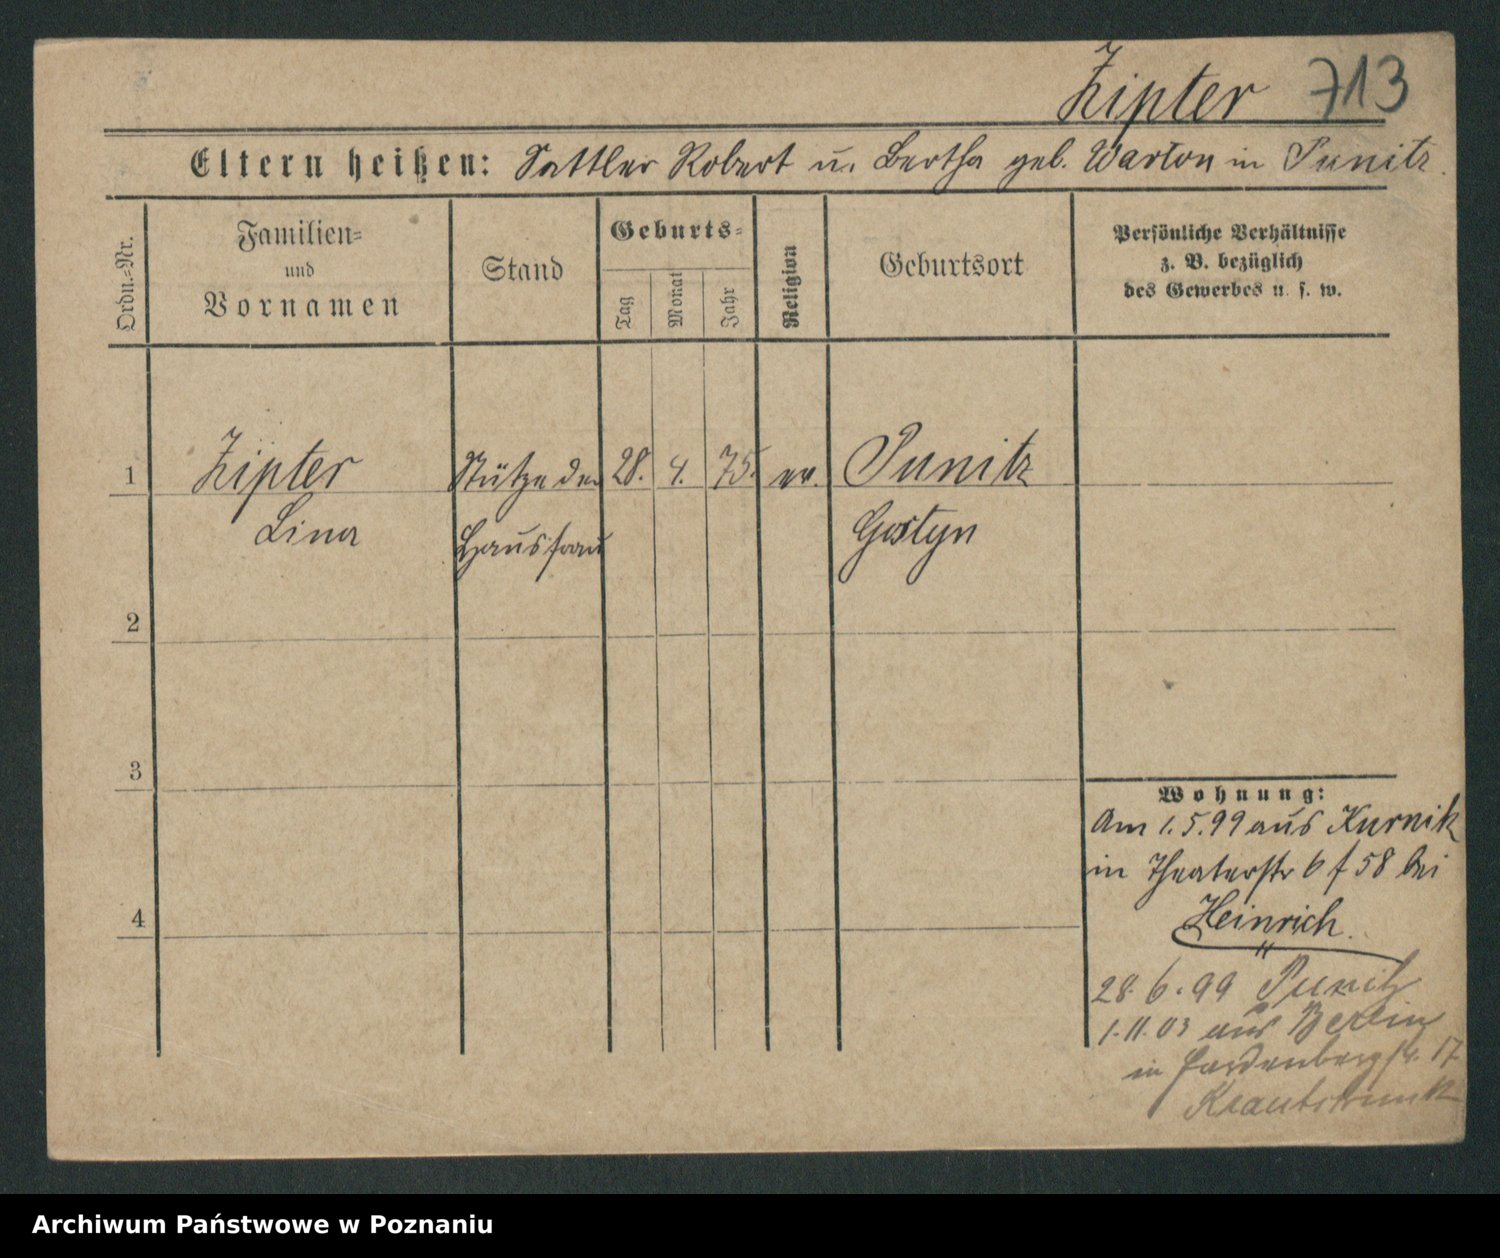 Zipter 713
Eltern heißen: Sattler Robert u. Bertha geb. Warton in Punitz.
Ordn.=Nr.
Familien=
und
Vornamen
Stand
Geburts=
Tag
Monat
Jahr
Religion
Geburtsort
Persönliche Verhältnisse
z. B. bezüglich
des Gewerbes u. s. w.
1 Zipter Stütze der 28. 4. 75. ev. Punitz
Lina Hausfrau Gostyn
2
3
4
Wohnung:
Am 1.5.99 aus Kurnik
in Theaterstr 6 f 58 bei
Heinrich.
28.6.99 Punitz
1.11.03 aus Berlin
in Hardenbergstr. 17
Krautstrunk
Archiwum Państwowe w Poznaniu